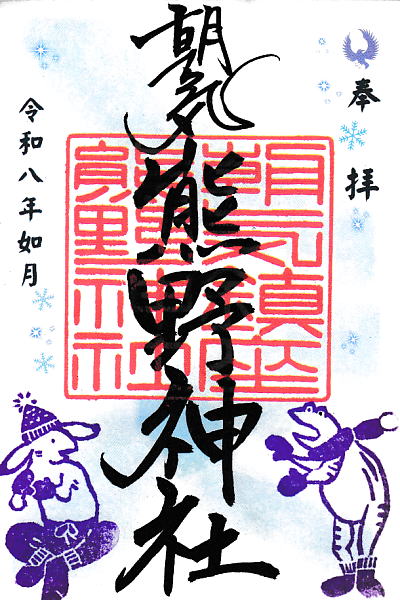 奉拝
朝気熊野神社
令和八年如月